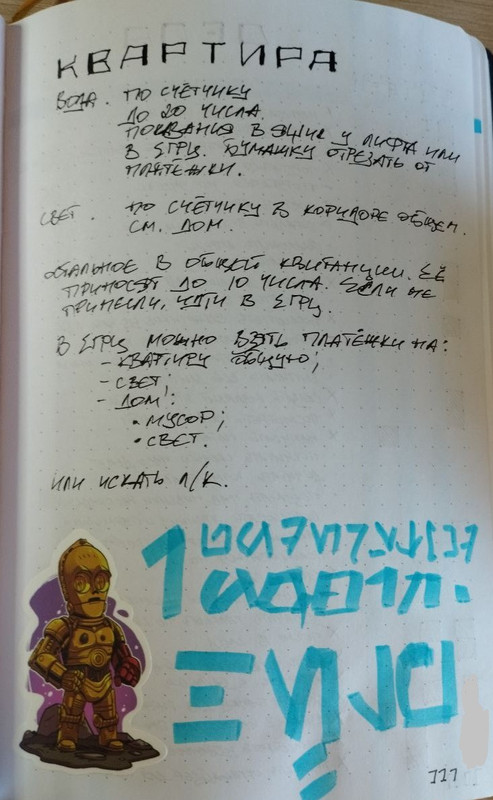 КВАРТИРА
ВОДА. ПО СЧЁТЧИКУ
ДО 20 ЧИСЛА.
ПОКАЗАНИЯ В ЯЩИК У ЛИФТА ИЛИ
В ЕГРЦ. БУМАЖКУ ОТРЕЗАТЬ ОТ
ПЛАТЁЖКИ.
СВЕТ. ПО СЧЁТЧИКУ В КОРИДОРЕ ОБЩЕМ.
СМ. ДОМ.
ОСТАЛЬНОЕ В ОБЩЕЙ КВИТАНЦИИ. ЕЁ
ПРИНОСЯТ ДО 10 ЧИСЛА. ЕСЛИ НЕ
ПРИНЕСЛИ, ИДТИ В ЕГРЦ.
В ЕГРЦ МОЖНО ВЗЯТЬ ПЛАТЁЖКИ НА:
- КВАРТИРУ ОБЩУЮ;
- СВЕТ;
- ДОМ:
• МУСОР;
• СВЕТ.
ИЛИ ИСКАТЬ Л/К.
1
111